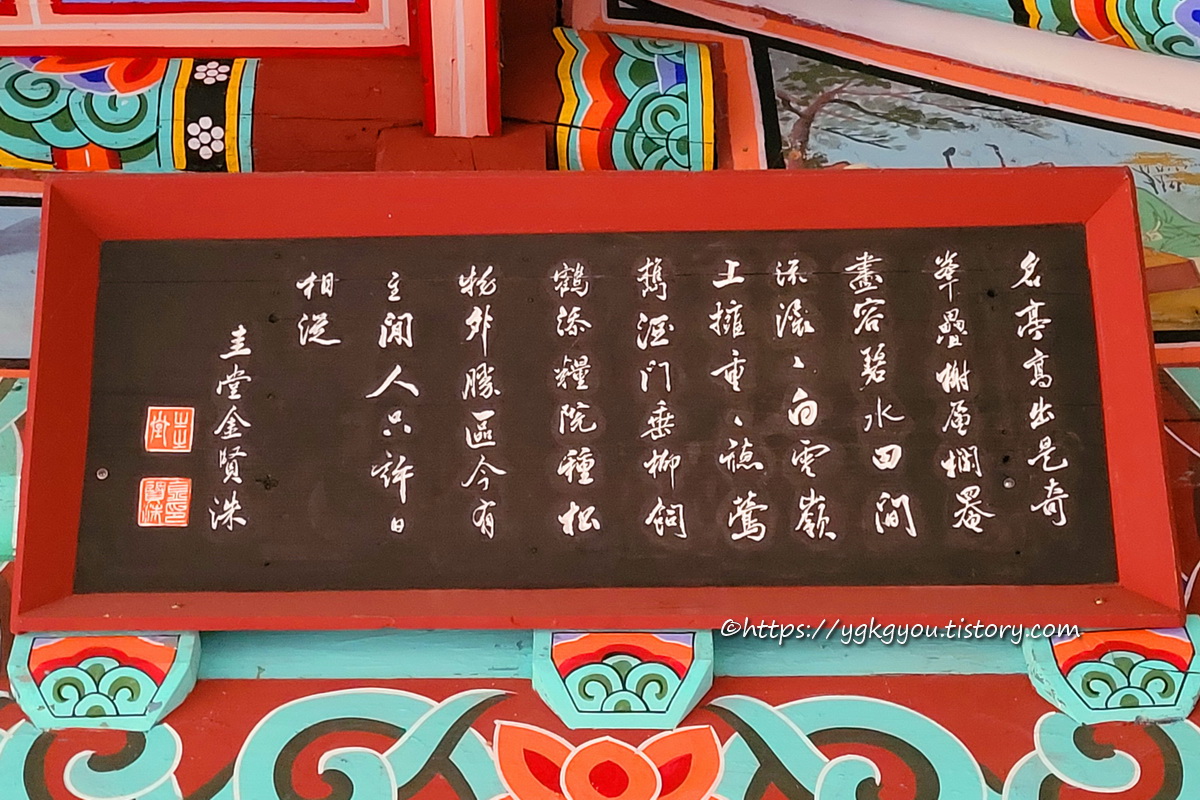 名亭高出是奇
峯疊榭層欄罨
畫容碧水田間
流滾〻白雲嶺
上擁重〻聽鶯
携酒門垂柳飼
鶴添糧院種松
物外勝區今有
主閒人只許日
相從
圭堂金賢洙
圭堂
金印賢洙
©https://ygkgyou.tistory.com